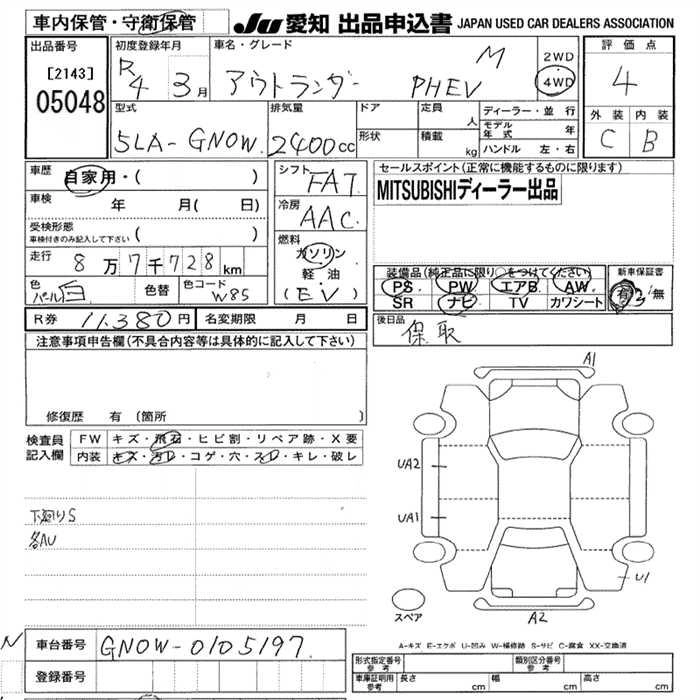 車内保管・守衛保管
JU 愛知 出品申込書 JAPAN USED CAR DEALERS ASSOCIATION
出品番号
[2143]
05048
初度登録年月
R 4 3月
車名・グレード
アウトランダー PHEV M
2WD
4WD
評価点
4
外装 内装
C B
型式
5LA-GN0W
排気量
2400cc
ドア
形状
定員
人
積載
kg
ディーラー・並行
モデル年式 年
ハンドル 左・右
車歴
自家用・( )
車検
年 月( 日)
受検形態
車検付きのみ記入して下さい ( )
走行
8万7千728km
色
パール白
色替
色コード
W85
シフト
FA7
冷房
AAC
燃料
ガソリン
軽・油
(EV)
セールスポイント(正常に機能するものに限ります)
MITSUBISHIディーラー出品
装備品(純正品に限り○をつけてください)
PS PW エアB AW
SR ナビ TV カワシート
新車保証書
有 無
R券 11,380円
名変期限 月 日
後日品
保 取
注意事項申告欄(不具合内容等は具体的に記入して下さい)
修復歴 有 (箇所 )
検査員記入欄
FW キズ・飛石・ヒビ割・リペア跡・X要
内装 キズ・汚レ・コゲ・穴・スレ・キレ・破レ
下廻りS
各AU
A1
UA2
UA1
U1
A2
スペア
A-キズ E-エクボ U-凹み W-補修跡 S-サビ C-腐食 XX-交換済
N
車台番号
GN0W-0105197
登録番号
形式指定番号
参考
類別区分番号
参考
車庫証明用
参考
長さ cm
幅 cm
高さ cm